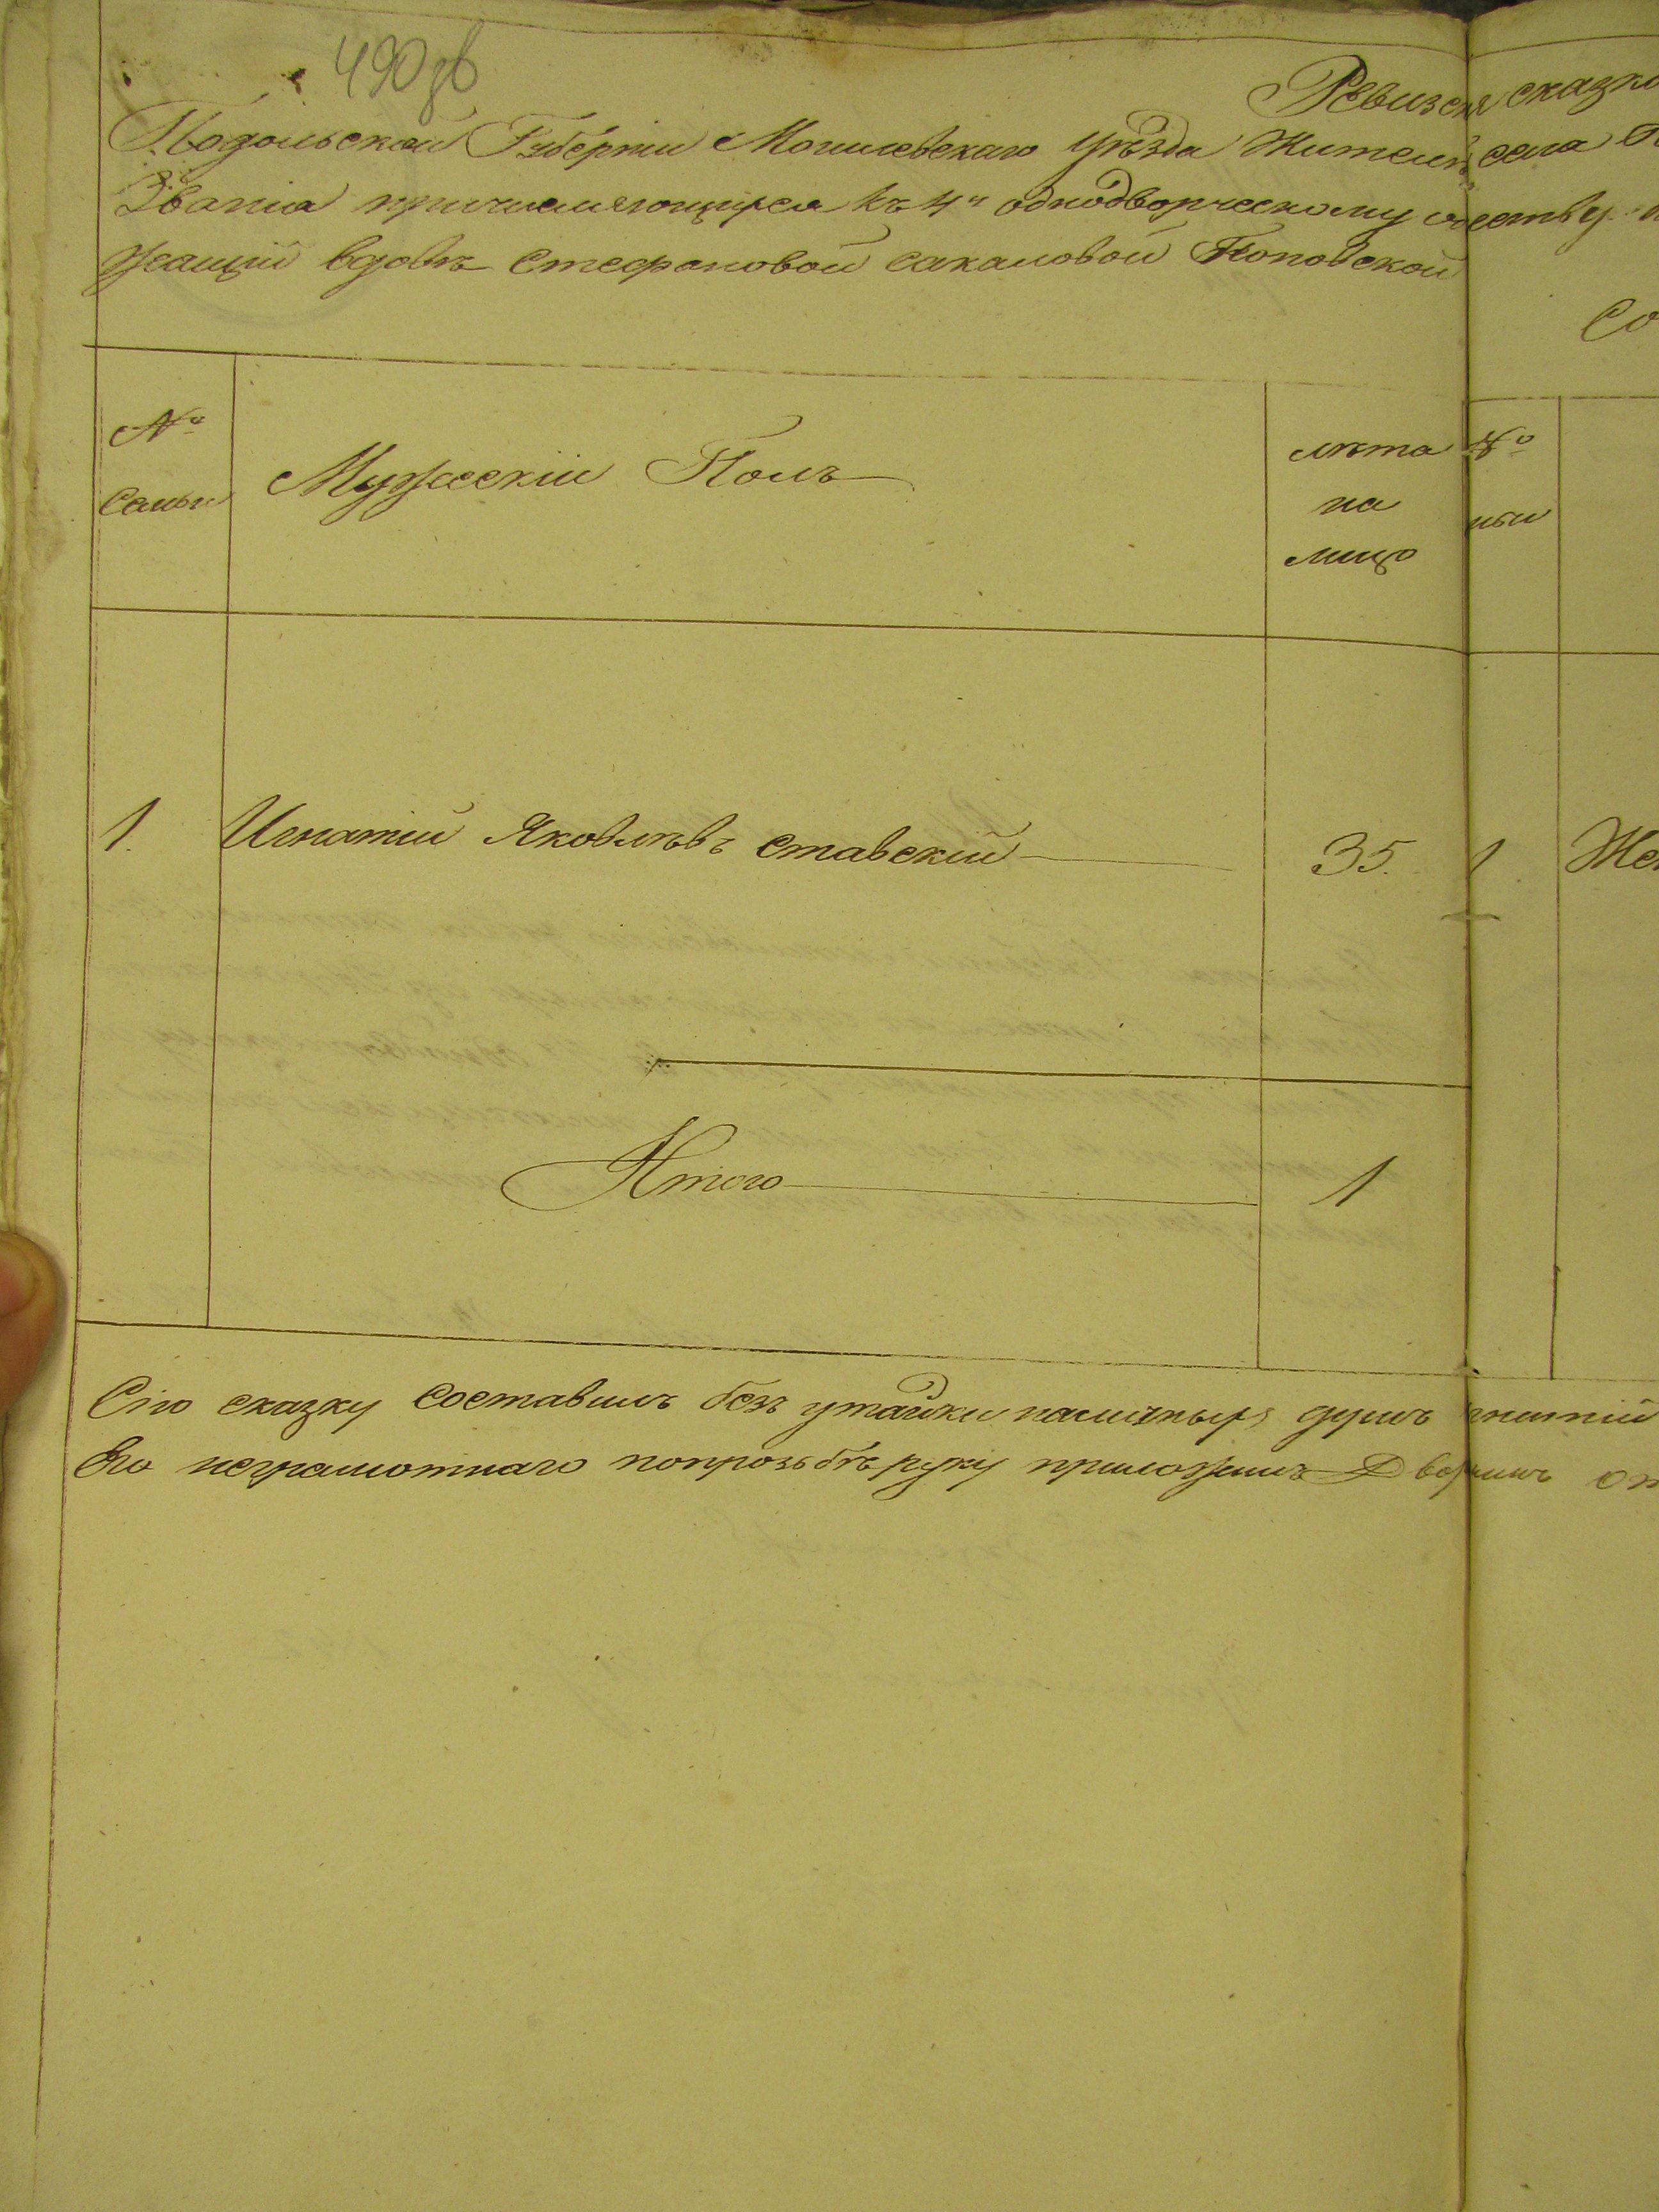 490 зв
Ревизская сказка
Подольской Губерніи Могилевскаго уѣзда Жителя села
Званіа причисляющуюся къ 4й однодворческому обществу
жащій вдовѣ Стефановой Сакаловой Поповской
Со
№ Семьи Мужескій Полъ лѣта на лицо № мьи
1. Игнатій Яковлѣвъ Ставскій 35. 1 Жен
Итого 1
Сію сказку Составилъ безъ утайки наличныхъ душъ Игнатій
Его неграмотнаго попрозьбѣ руку приложилъ Дворянинъ